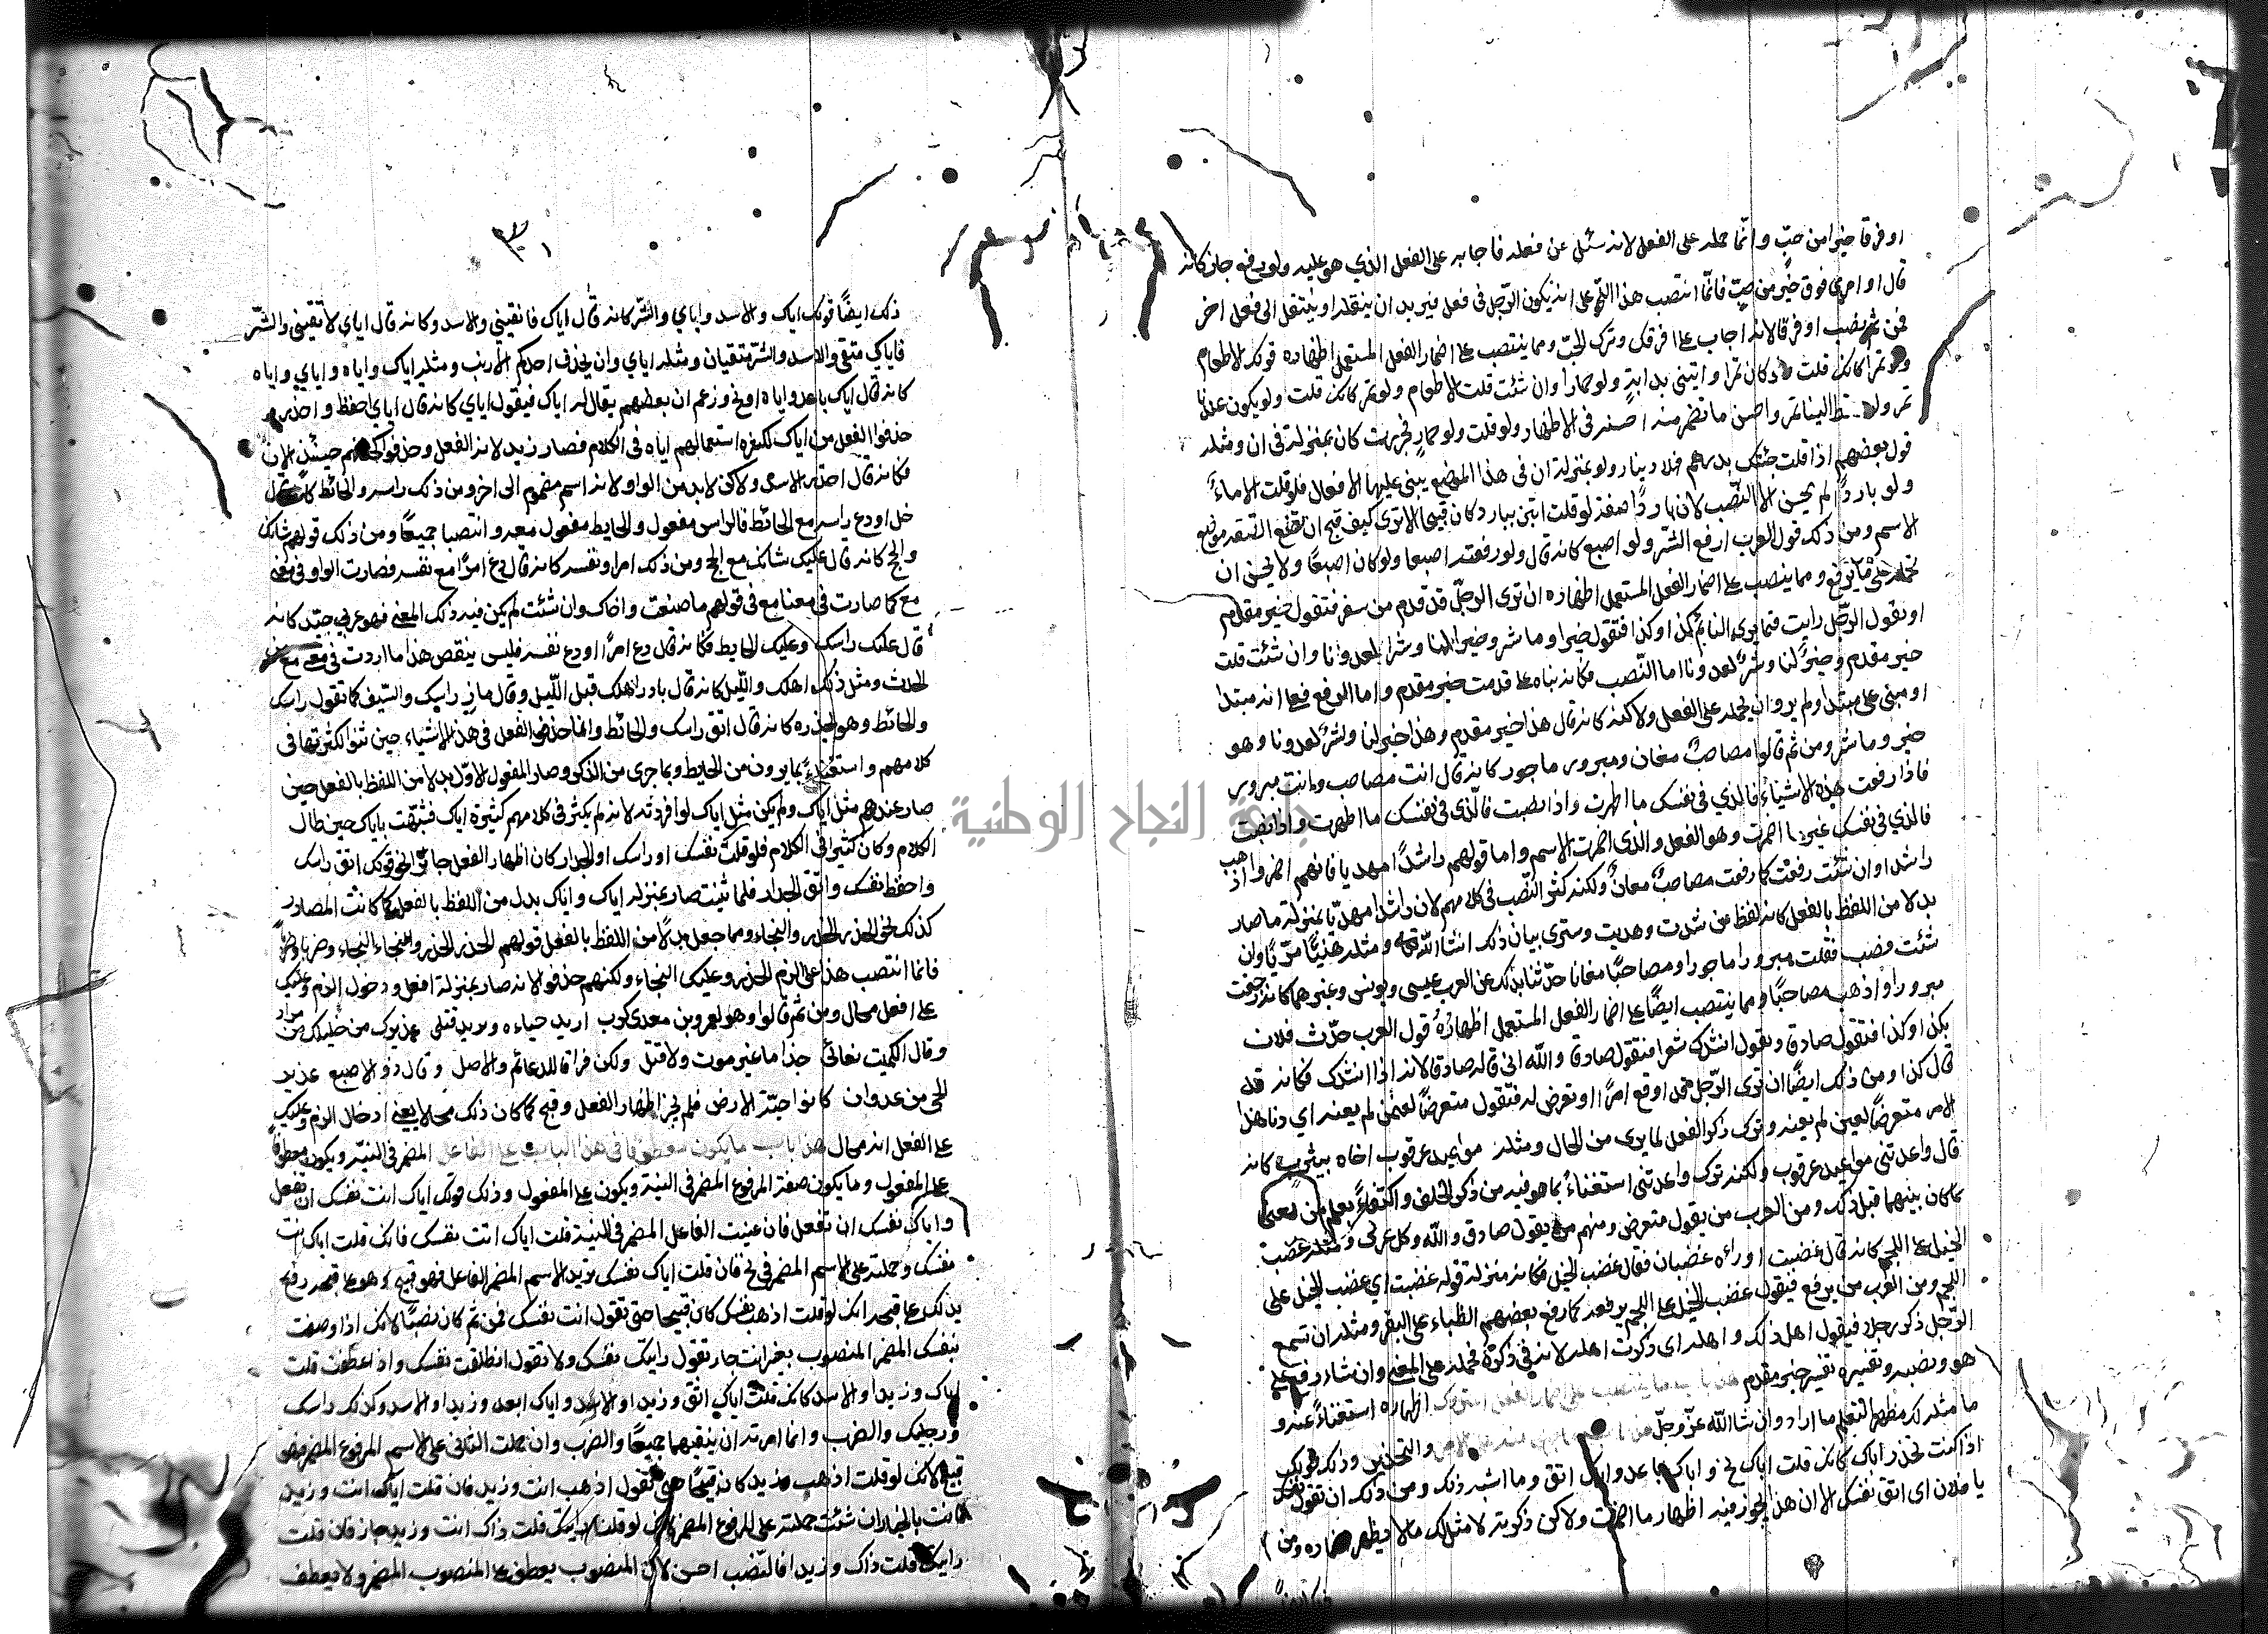 او فرقا خيرا من حبّ وانّما حمله على الفعل لانه سئل عن فعله فاجابه على الفعل الذي هو عليه ولو رفع جاز كانه
قال او امري فرق خير من حبّ فانّما انتصب هذا النحو على انه يكون الرّجل في فعل فيريد ان ينقله او ينتقل الى فعل اخر
فمن ثم نصب او فرقا لانه اجاب على افرقك وترك الحبّ ومما ينتصب على اضمار الفعل المستعمل اظهاره قولك الاطعام
ولو تمرا كانك قلت ولو كان تمرا وايتني بدابة ولو حمارا وان شئت قلت الاطعام ولو تمر كانك قلت ولو يكون عندنا
تمر ولو سقط الينا تمر واحسن ما تضمر منه احسنه في الاظهار ولو قلت ولو حمار فجررت كان بمنزلته في ان ومثله
قول بعضهم اذا قلت جئتك بدرهم فهلا دينار ولو بمنزلة ان في هذا الموضع يبنى عليها الافعال فلو قلت الا ماءً
ولو باردًا لم يحسن الا النّصب لان باردًا صفة لو قلت ائتني ببارد كان قبيحا الا ترى كيف قبح ان تضع الصفة موضع
الاسم ومن ذلك قول العرب ارفع الشّر ولو اصبع كانه قال ولو رفعته اصبعا ولو كان اصبعًا ولا يحسن ان
تحمله على ما يرفع ومما ينصب على اضمار الفعل المستعمل اظهاره ان ترى الرجلّ قد قدم من سفر فتقول خير مقدم
او يقول الرّجل رايت فيما يرى النائم كذا وكذا فتقول خيرا وما شر وخيرا لنا وشرا لعدونا وان شئت قلت
خير مقدم وخيرٌ لنا وشرٌ لعدونا اما النّصب فكانه بناه على قدمت خير مقدم واما الرفع فعلى انه مبتدا
او مبني على مبتدا ولم يرد ان يحمله على الفعل ولاكنه كانه قال هذا خير مقدم وهذا خير لنا وشرٌ لعدونا وهو
خير وما شر ومن ثم قالوا مصاحبٌ معان ومبرور ماجور كانه قال انت مصاحب وانت مبرور
فاذا رفعت هذه الاشياء فالذي في نفسك ما اظهرت واذا نصبت فالّذي في نفسك ما اظهرت واذا نصبت
فالذي في نفسك غير ما اظهرت وهو الفعل والذي اظهرت الاسم واما قولهم راشدًا مهديا فانهم اضمروا اذهب
راشدا وان شئت رفعت كما رفعت مصاحبٌ معانٌ ولكنه كثر النّصب في كلامهم لان راشدا مهديّا بمنزلة ما صار
بدلا من اللفظ بالفعل كانه لفظ من شدت وهديت وسترى بيان ذلك انشا اللّه تعالى ومثله هنيًّا مريًّا وان
شئت نصب فقلت مبرورا ماجورا ومصاحبًا معانا حدّثنا بذلك عن العرب عيسى ويونس وغيرهما كانه رجعت
مبرورا واذهب مصاحبًا ومما ينتصب ايضًا على اضمار الفعل المستعمل اظهارُهُ قول العرب حدّث فلان
بكذا وكذا فتقول صادق ويقول انشدك شعرا فتقول صادق والله اي قاله صادقا لانه اذا انشدك فكانه قد
قال كذا ومن ذلك ايضًا ان ترى الرّجل قد اوقع امرًا او تعرض له فتقول متعرضًا لعنن لم يعنه اي دنا هذا
الامر متعرضًا لعين لم يعنه وترك ذكر الفعل لما يرى من الحال ومثله مواعيد عرقوب اخاه بيثرب كانه
قال واعدتني مواعيد عرقوب ولكنه ترك واعدتني استغناءً بما هو فيه من ذكر الخلف واكتفاءً بعلم من يعني بما
كان بينهما قبل ذلك ومن العرب من يقول متعرض ومنهم من يقول صادق واللّه وكل عربي ومثله غضب
الخيل على اللجم كانه قال غضبت او راه غضبان فقال غضب الخيل فكانه بمنزلة قوله غضبت اي غضب الخيل على
اللجم ومن العرب من يرفع فيقول غضب الخيل على اللجم يرفعه كما رفع بعضهم الظباء على البقر ومثله ان تسمع
الرّجل ذكر رجلا فيقول اهل ذلك واهله اي ذكرت اهله لانه في ذكره فحمله على المعنى وان شاء رفع على
هو ونصبه وتفسيره تفسير خير مقدم هذا باب ما ينتصب على اضمار الفعل المتروك اظهاره استغناءً عنه و
ما مثله لك مظهرا لتعلم ما اراد وان شا اللّه عزّ وجلّ والتحذير وذلك قولك
اذا كنت تحذر اياك كانك قلت اياك نح و اياك باعد واياك اتق وما اشبه ذلك ومن ذلك ان تقول نفسك
يا فلان اي اتق نفسك الا ان هذا يجوز فيه اظهار ما اضمرت ولاكن ذكرته لا مثل لك ما لا يظهر اضماره ومن
ذلك ايضًا قولك اياك والاسد واياي والشّر كانه قال اياك فاتقيني والاسد وكانه قال اياي لا تقيني والشّر
فاياك متقى والاسد والشر متقيان ومثله اياي وان يحذف احدكم الارنب ومثله اياك واياه واياي واياه
كانه قال اياك باعد واياه او نح وزعم ان بعضهم يقال له اياك فيقول اياي كانه قال اياي احفظ واحذر
حذفوا الفعل من اياك لكثرة استعمالهم اياه في الكلام فصار زيد لانه الفعل وحذفوا كحذفهم حينئذ الان
فكانه قال احذر الاسد ولاكن لابد من الواو لانه اسم مضموم الى اخر ومن ذلك راسه والحائط كانه قال
خل او دع راسه مع الحائط فالراس مفعول والحايط مفعول معه وانتصبا جميعًا ومن ذلك قولهم شانك
والحج كانه قال عليك شانك مع الحج ومن ذلك امرا ونفسه كانه قال دع امرًا مع نفسه فصارت الواو في معنى
مع كما صارت في معنا مع في قولهم ما صنعت واخاك وان شئت لم يكن فيه ذلك المعنى فهو عربي جيّد كانه
قال عليك راسك وعليك الحايط فكانه قال دع امرًا ودع نفسه فليس ينقض هذا ما اردت في معنى مع من
الحدث ومثل ذلك اهلك والليل كانه قال بادر اهلك قبل اللّيل وقال ماز راسك والسّيف كما تقول راسك
والحائط وهو يحذره كانه قال اتق راسك والحائط وانما حذفوا الفعل في هذه الاشياء حين ثنوا لكثرتها في
كلامهم واستغناءً بما يرون من الحايط وبما جرى من الذكر وصار المفعول الاوّل بدلا من اللفظ بالفعل حين
صار عندهم مثل اياك ولم يكن مثل اياك لو افردته لانه لم يكثر في كلامهم كثيرة اياك فشبّهت باياك حين طال
الكلام وكان كثيرا في الكلام فلو قلت نفسك او راسك او الجدار كان اظهار الفعل جائز نحو قولك اتق راسك
واحفظ نفسك واتق الجدار فلما ثنيت صار بمنزلة اياك واياك بدل من اللفظ بالفعل كما كانت المصادر
كذلك نحو الحذر الحذر والنجاء ومما جعل بدلًا من اللفظ بالفعل قولهم الحذر الحذر والنجاء النجاء وضربا ضربا
فانما انتصب هذا على الزم الحذر وعليك النجاء ولكنهم حذفوا لانه صار بمنزلة افعل ودخول الزم وعليك
على افعل محال ومن ثم قالوا وهو لعمرو بن معدي كرب اريد حياءه ويريد قتلي عذيرك من خليلك من مراد
وقال الكميت نعائي جذاما غير موت ولا قتل ولكن فراقا للدعائم والاصل وقال ذو الاصبع عذير
الحي من عدوان كانوا حيّة الارض فلم يجز اظهار الفعل وقبح كما كان ذلك محالا يعني ادخال الزم وعليك
على الفعل انه محال هذا باب ما يكون معطوفا في هذا الباب على الفاعل المضمر في النيّة ويكون معطوفًا
على المفعول وما يكون صفة المرفوع المضمر في النية ويكون على المفعول وذلك قولك اياك انت نفسك ان تفعل
واياك نفسك ان تفعل فان عنيت الفاعل المضمر في النية قلت اياك انت نفسك فانك قلت اياك انت
نفسك وحملته على الاسم المضمر في نح فان قلت اياك نفسك تريد الاسم المضمر الفاعل فهو قبيح وهو على قبحه رفع
يدلك على قبحه انك لو قلت اذهب نفسك كان قبيحا حتى تقول انت نفسك فمن ثم كان نصبًا لانك اذا وصفت
بنفسك المضمر المنصوب بغير انت جاز تقول رايتك نفسك ولا تقول انطلقت نفسك واذا عطفت قلت
اياك وزيدا والاسد كانك قلت اياك اتق وزيدا والاسد واياك ابعد وزيدا والاسد وكذلك راسك
ورجليك والضرب وانما امرته ان يتقيهما جميعًا والضرب وان حملت الثاني على الاسم المرفوع المضمر فهو
قبيح لانك لو قلت اذهب وزيد كان قبيحًا حتى تقول اذهب انت وزيد فان قلت اياك انت وزيد
فانت بالخيار ان شئت حملته على المرفوع المضمر لو قلت رايتك قلت ذاك انت وزيد جاز فان قلت
رايتك قلت ذاك وزيدا فالنّصب احسن لان المنصوب يعطف على المنصوب المضمر ولا يعطف
جامعة النجاح الوطنية